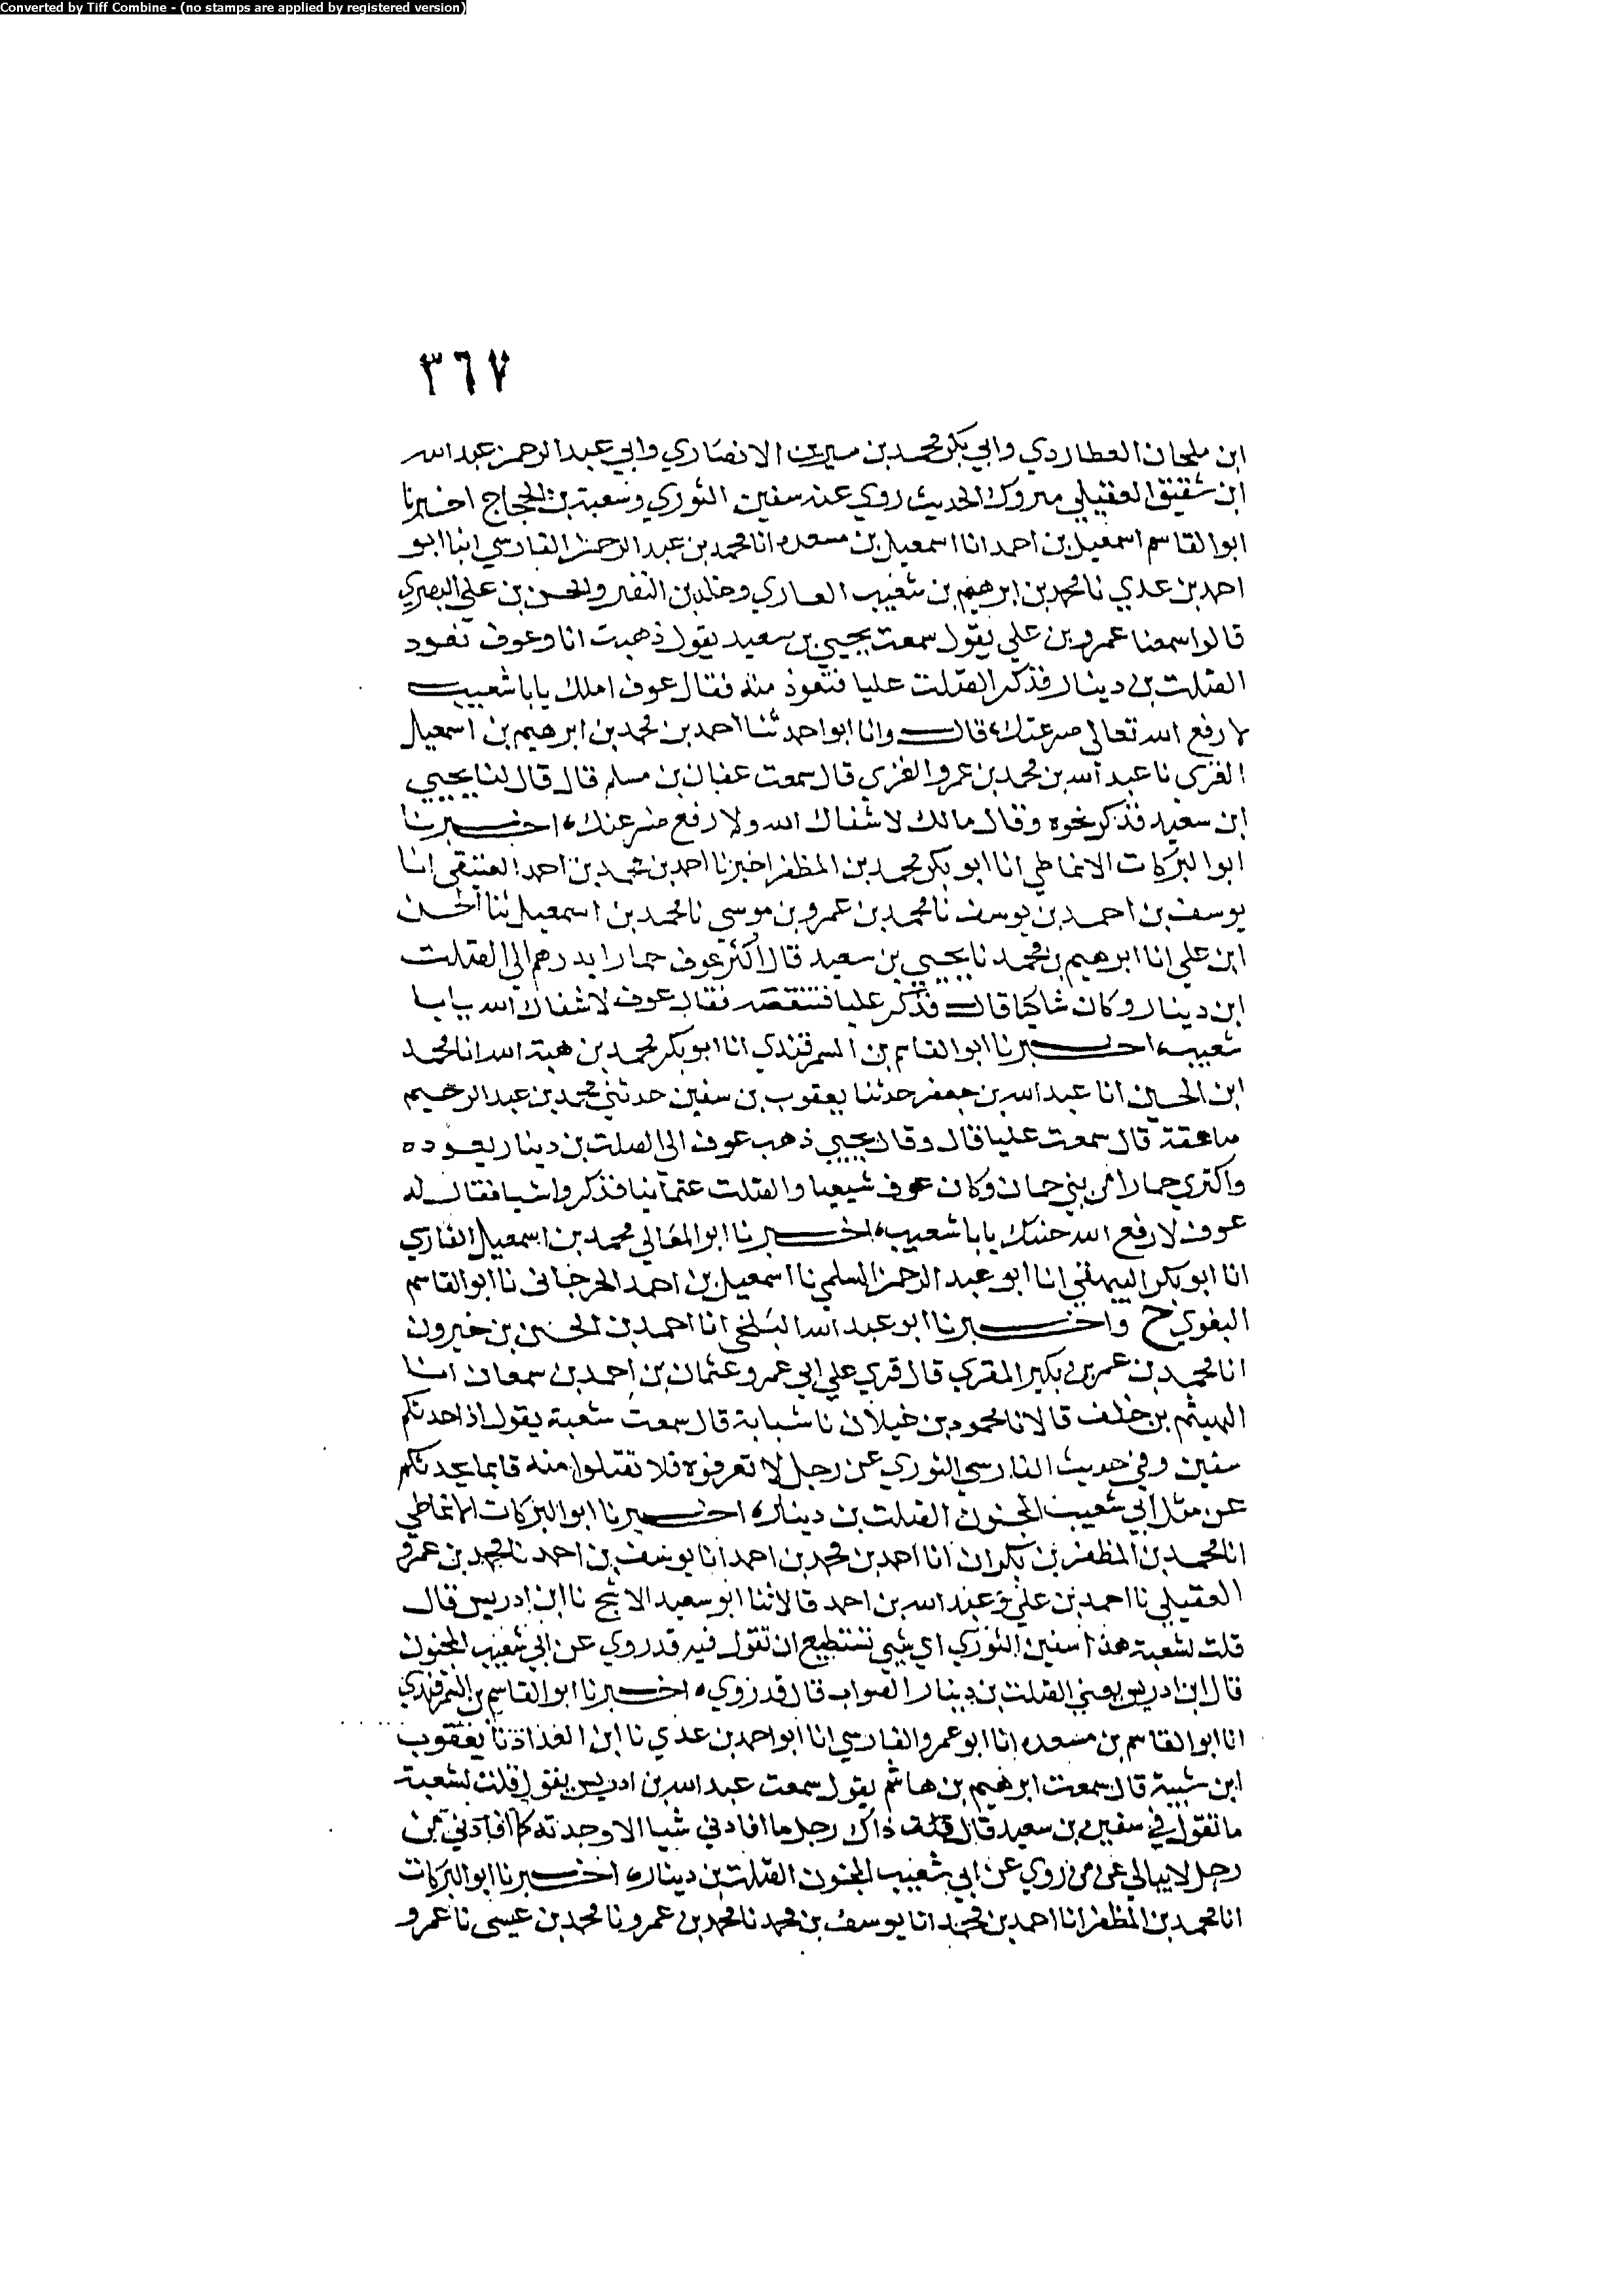 Converted by Tiff Combine - (no stamps are applied by registered version)
٣٦٧
ابن ملحان العطاردي وابي بكر محمد بن سيرين الانصاري وابي عبد الرحمن عبد الله
ابن شقيق العقيلي متروك الحديث روي عنه سفين الثوري وشعبة بن الحجاج اخبرنا
ابو القاسم اسمعيل بن احمد انا اسمعيل بن مسعده انا محمد بن عبد الرحمن الفارسي ابنا ابو
احمد بن عدي نا محمد بن ابرهيم بن شعيب العازي وخلد بن النضر والحسن بن علي البصري
قالوا سمعنا عمرو بن علي يقول سمعت يحيي بن سعيد يقول ذهبت انا وعوف نعود
الصلت بن دينار فذكر الصلت عليا فتعوذ منه فقال عوف املك يابا شعيب
لا رفع الله تعالى صرعتك قال وانا ابو احمد ثنا احمد بن محمد بن ابرهيم بن اسمعيل
الغزي نا عبد الله بن محمد بن عمرو الغزي قال سمعت عفان بن مسلم قال قال لنا يحيي
ابن سعيد فذكر نحوه وقال مالك لا شفاك الله ولا رفع ضرعنك اخبرنا
ابو البركات الانماطي انا ابو بكر محمد بن المظفر اخبرنا احمد بن محمد بن احمد العتيقي انا
يوسف بن احمد بن يوسف نا محمد بن عمرو بن موسي نا محمد بن اسمعيل ثنا الحسن
ابن علي انا ابرهيم بن محمد نا يحيي بن سعيد قال اكترى عوف حمارا بدرهم الى الصلت
ابن دينار وكان شاكيا قال فذكر عليا فتنقصه فقال عوف لا شفاك الله يابا
شعيب اخبرنا ابو القاسم بن السمرقندي انا ابو بكر محمد بن هبة الله انا محمد
ابن الحسين انا عبد الله بن جعفر حدثنا يعقوب بن سفين حدثني محمد بن عبد الرحيم
صاعقة قال سمعت عليا قال وقال يحيي ذهب عوف الى الصلت بن دينار يعوده
واكتري حمارا من بني حمان وكان عوف شيعيا والصلت عثمانيا فذكروا شيا فقال له
عوف لا رفع الله جنبك يابا شعيب اخبرنا ابو المعالي محمد بن اسمعيل الفارسي
انا ابو بكر البيهقي انا ابو عبد الرحمن السلمي نا اسمعيل بن احمد الجرجاني نا ابو القاسم
البغوي ح واخبرنا ابو عبد الله البلخي انا احمد بن الحسن بن خيرون
انا محمد بن عمر بن بكير المقري قال قري علي ابي عمرو عثمان بن احمد بن سمعان انا
الهيثم بن خلف قالا نا محمود بن غيلان نا شبابة قال سمعت شعبة يقول اذا حدثكم
سفين وفي حديث الفارسي الثوري عن رجل لا تعرفوه فلا تقبلوا منه فانما يحدثكم
عن مثل ابي شعيب المجنون الصلت بن دينار اخبرنا ابو البركات الانماطي
انا محمد بن المظفر بن بكران انا احمد بن محمد بن احمد انا يوسف بن احمد نا محمد بن عمرو
العقيلي نا احمد بن علي وعبد الله بن احمد قالا ثنا ابو سعيد الاشج نا ابن ادريس قال
قلت لشعبة هذا سفين الثوري اي شي تستطيع ان تقول فيه قد روي عن ابي شعيب المجنون
قال ابن ادريس يعني الصلت بن دينار الصواب قال قد روي اخبرنا ابو القاسم بن السمرقندي
انا ابو القاسم بن مسعده انا ابو عمرو الفارسي انا ابو احمد بن عدي نا ابن العذاد نا يعقوب
ابن شيبة قال سمعت ابرهيم بن هاشم يقول سمعت عبد الله بن ادريس يقول قلت لشعبة
ما تقول في سفين بن سعيد قال ذاك رجل ما افادني شيا الا وجدته كما افادني من
رجل لا يبالي عن من روي عن ابي شعيب المجنون الصلت بن دينار اخبرنا ابو البركات
انا محمد بن المظفر انا احمد بن محمد انا يوسف بن محمد نا محمد بن عمرو نا محمد بن عيسى نا عمرو